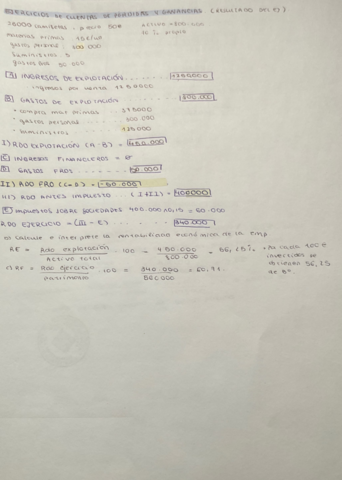 EJERCICIOS DE CUENTAS DE PERDIDAS Y GANANCIAS (RESULTADO DEL EJ)
25000 precio 50€ Activo = 800.000
materias primas 15€/ud
gastos personal: 300.000
suministros 5
gastos fros 50.000
A INGRESOS DE EXPLOTACIÓN 1250000
ingresos por venta 1250000
B GASTOS DE EXPLOTACIÓN 800.000
• compra mat primas 375000
• gastos personal 300.000
• suministros 125000
I) RDO EXPLOTACIÓN (A-B) = 450.000
C INGRESOS FINANCIEROS = 0
D GASTOS FROS 50.000
II) RDO FRO (C-D) = -50.000
III) RDO ANTES IMPUESTO (I+II) = 400000
E IMPUESTOS SOBRE SOCIEDADES 400.000 x 0,15 = 60.000
RDO EJERCICIO = (III - E) 340.000
b) Calcule e interprete la rentabilidad económica de la emp
RE = Rdo explotación / Activo total · 100 = 450.000 / 800.000 = 56,25% → Por cada 100€
invertidos se
obtienen 56,25
de Bº
RF = Rdo Ejercicio / patrimonio · 100 = 340.000 / 560000 = 60,7%